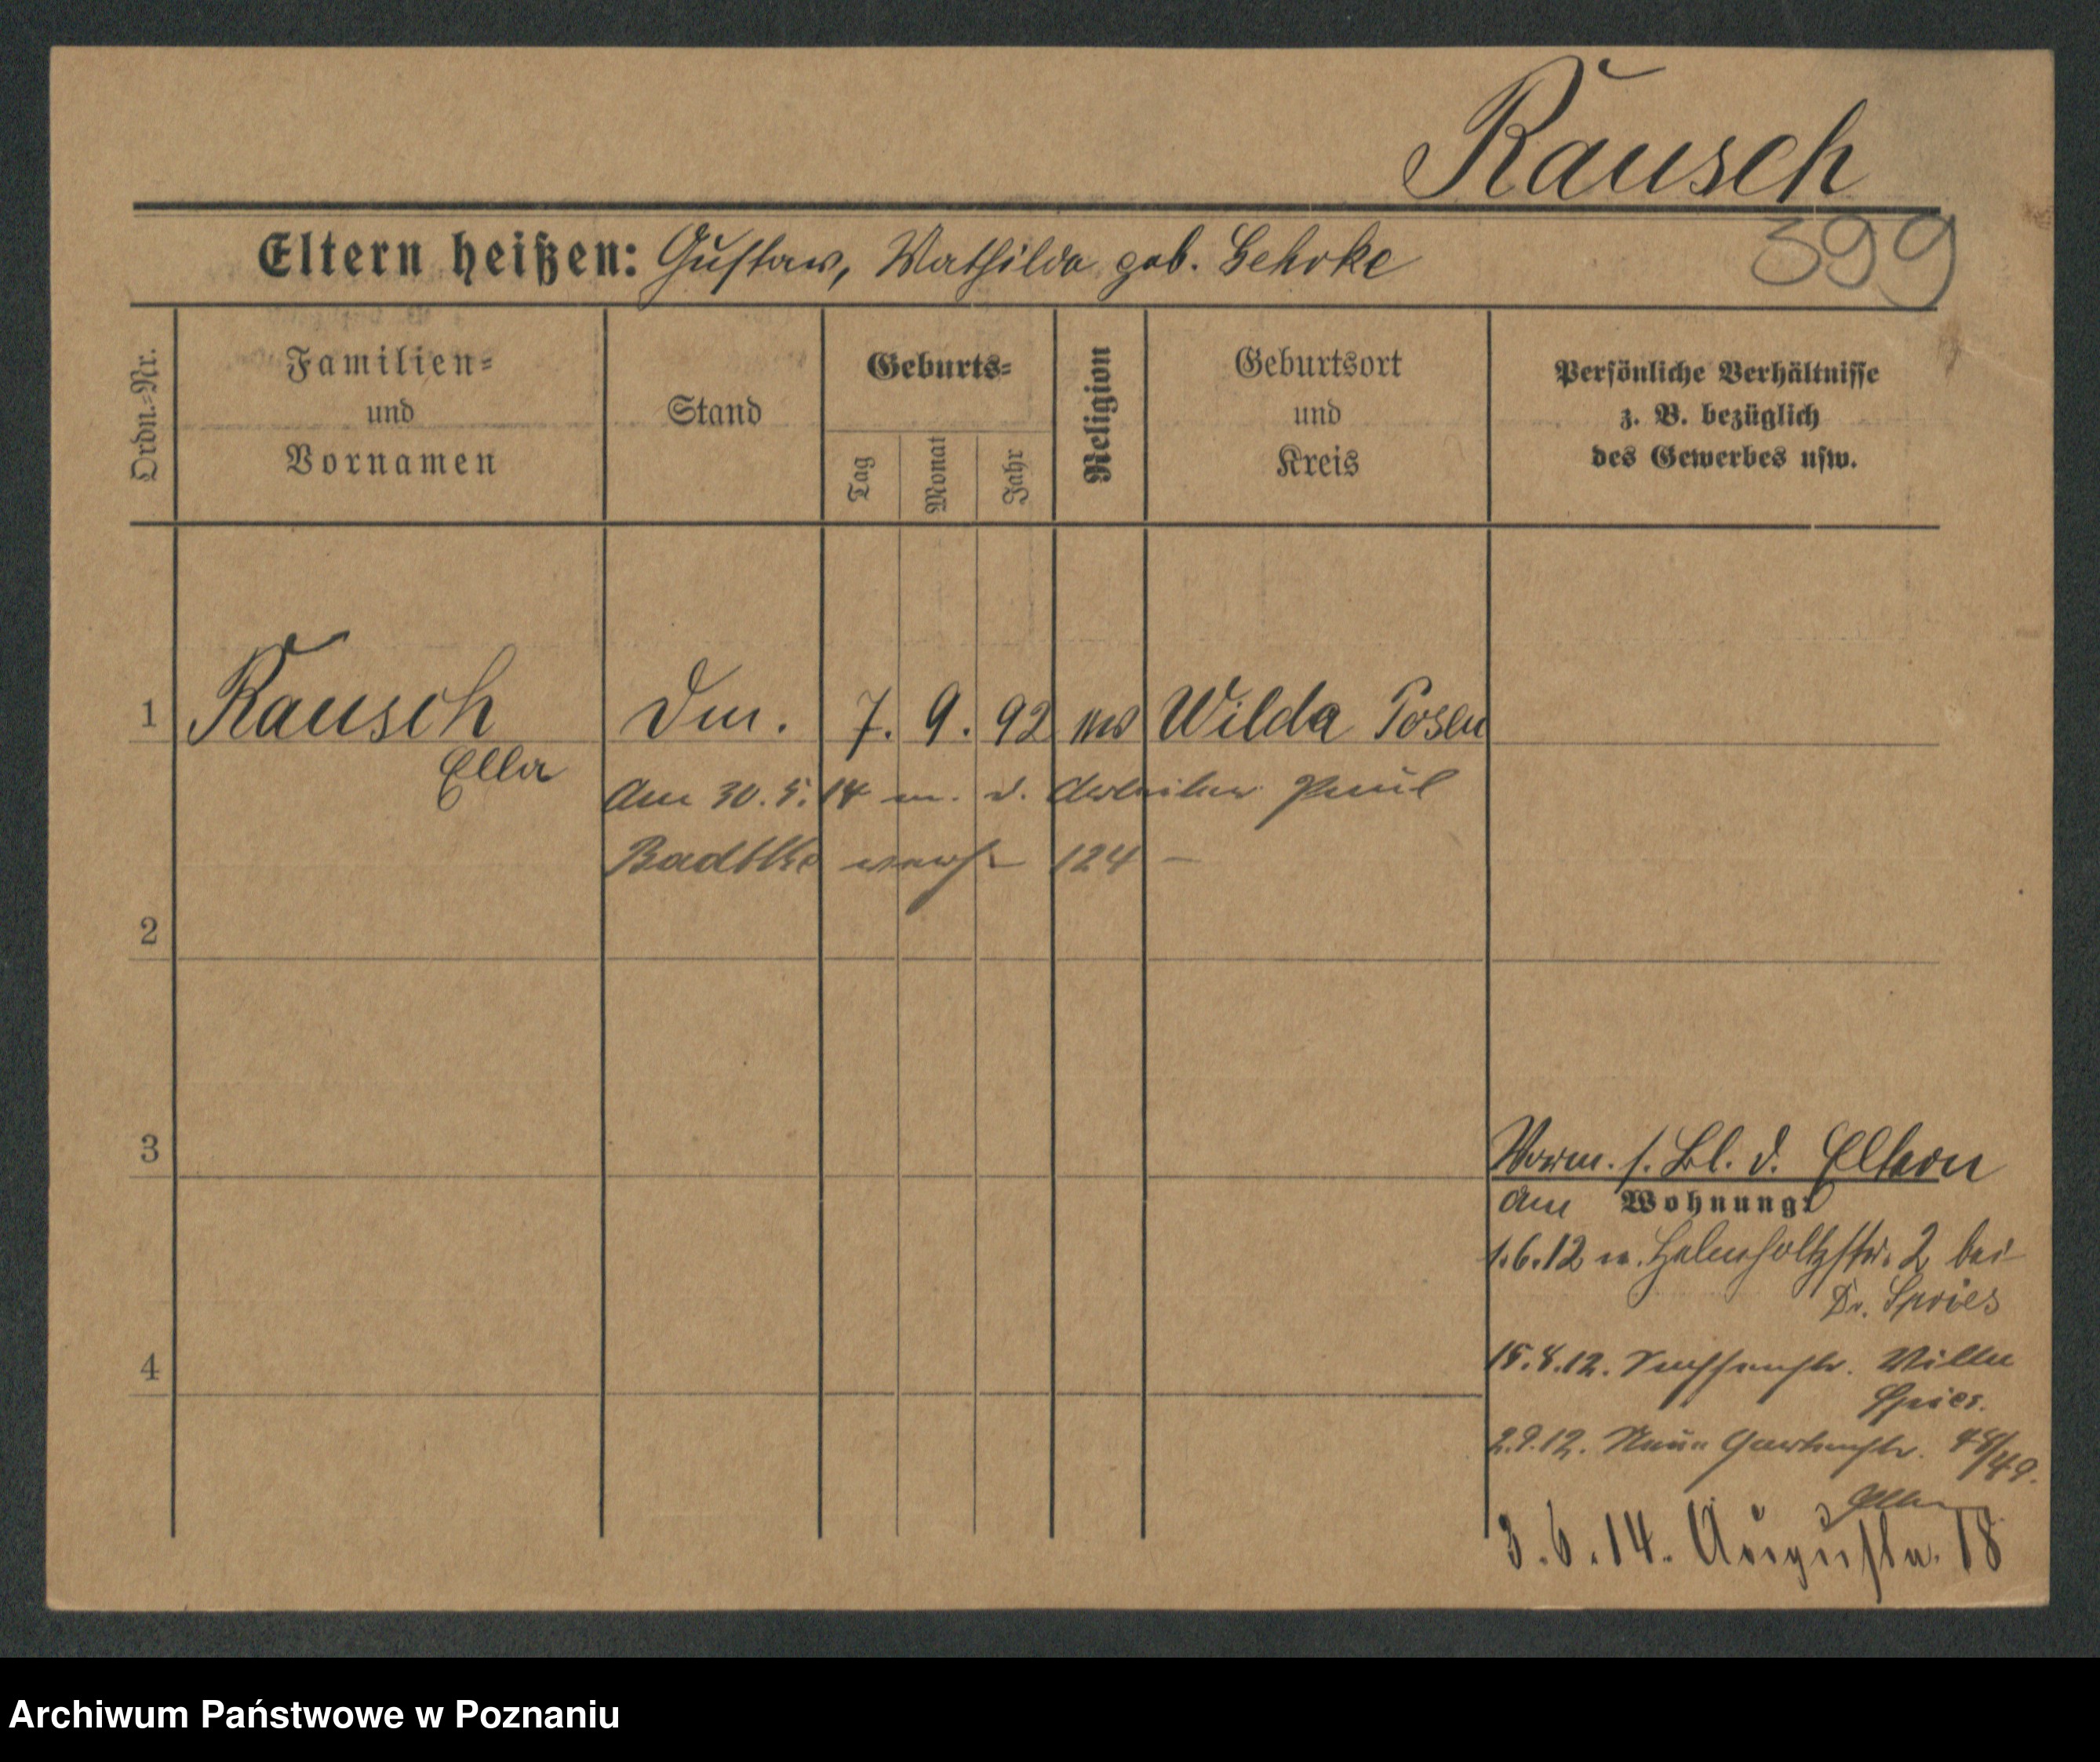 Rausch
399
Eltern heißen: Gustav, Mathilda geb. Gehrke
Ordn.=Nr.
Familien=
und
Vornamen
Stand
Geburts=
Tag
Monat
Jahr
Religion
Geburtsort
und
Kreis
Persönliche Verhältnisse
z. B. bezüglich
des Gewerbes usw.
1 Rausch Dm. 7. 9. 92 Wilda Posen
Ella
Am 30. 5. 14 m. d. Arbeiter Paul
Badtke verh. 124 –
2
3
Vorm. s. Bl. d. Eltern
am Wohnung:
1.6.12 n. Helmholtzstr. 2 bei
Dr. Spies
4
15.8.12. Villa
Spies.
2.9.12. Neue Gartenstr. 48/49.
3.6.14. Augusta. 18
Archiwum Państwowe w Poznaniu